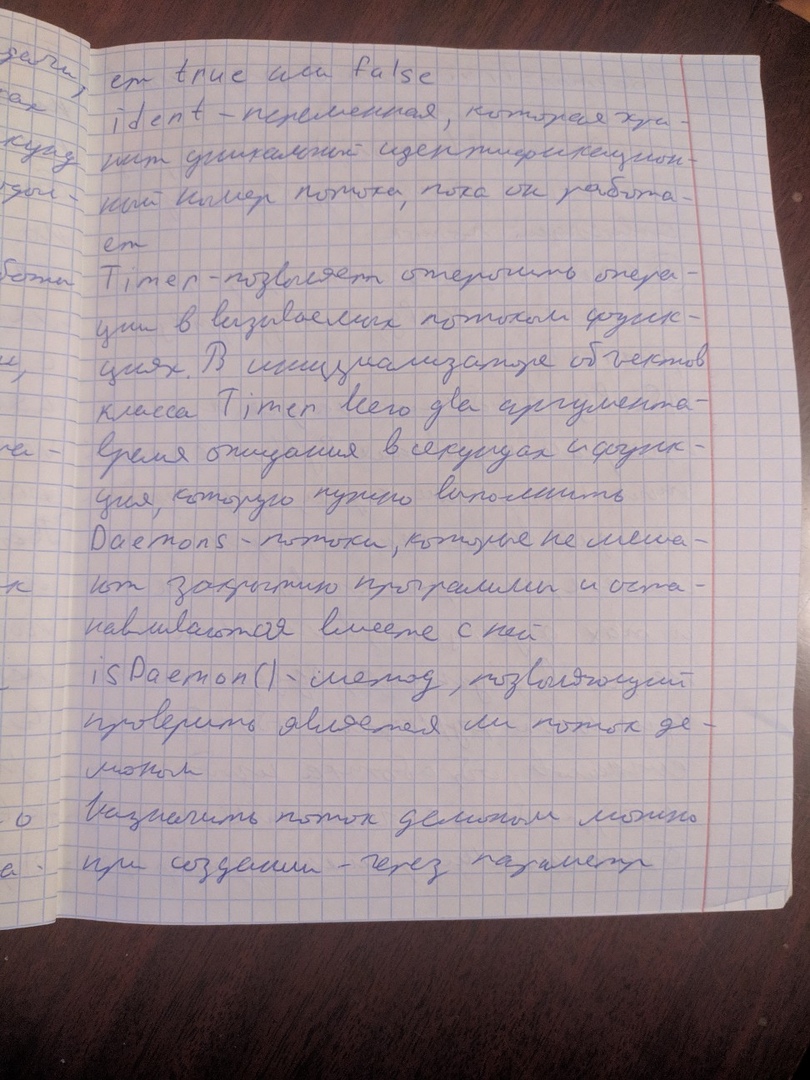 ет true или false
ident - переменная, которая хра-
нит уникальный идентификацион-
ный номер потока, пока он работа-
ет
Timer - позволяет отсрочить опера-
ции в вызываемых потоком функ-
циях. В инициализаторе объектов
класса Timer всего два аргумента-
время ожидания в секундах и функ-
ция, которую нужно выполнить
Daemons - потоки, которые не меша-
ют закрытию программы и оста-
навливаются вместе с ней
isDaemon() - метод, позволяющий
проверить является ли поток де-
моном
Назначить поток демоном можно
при создании - через параметр